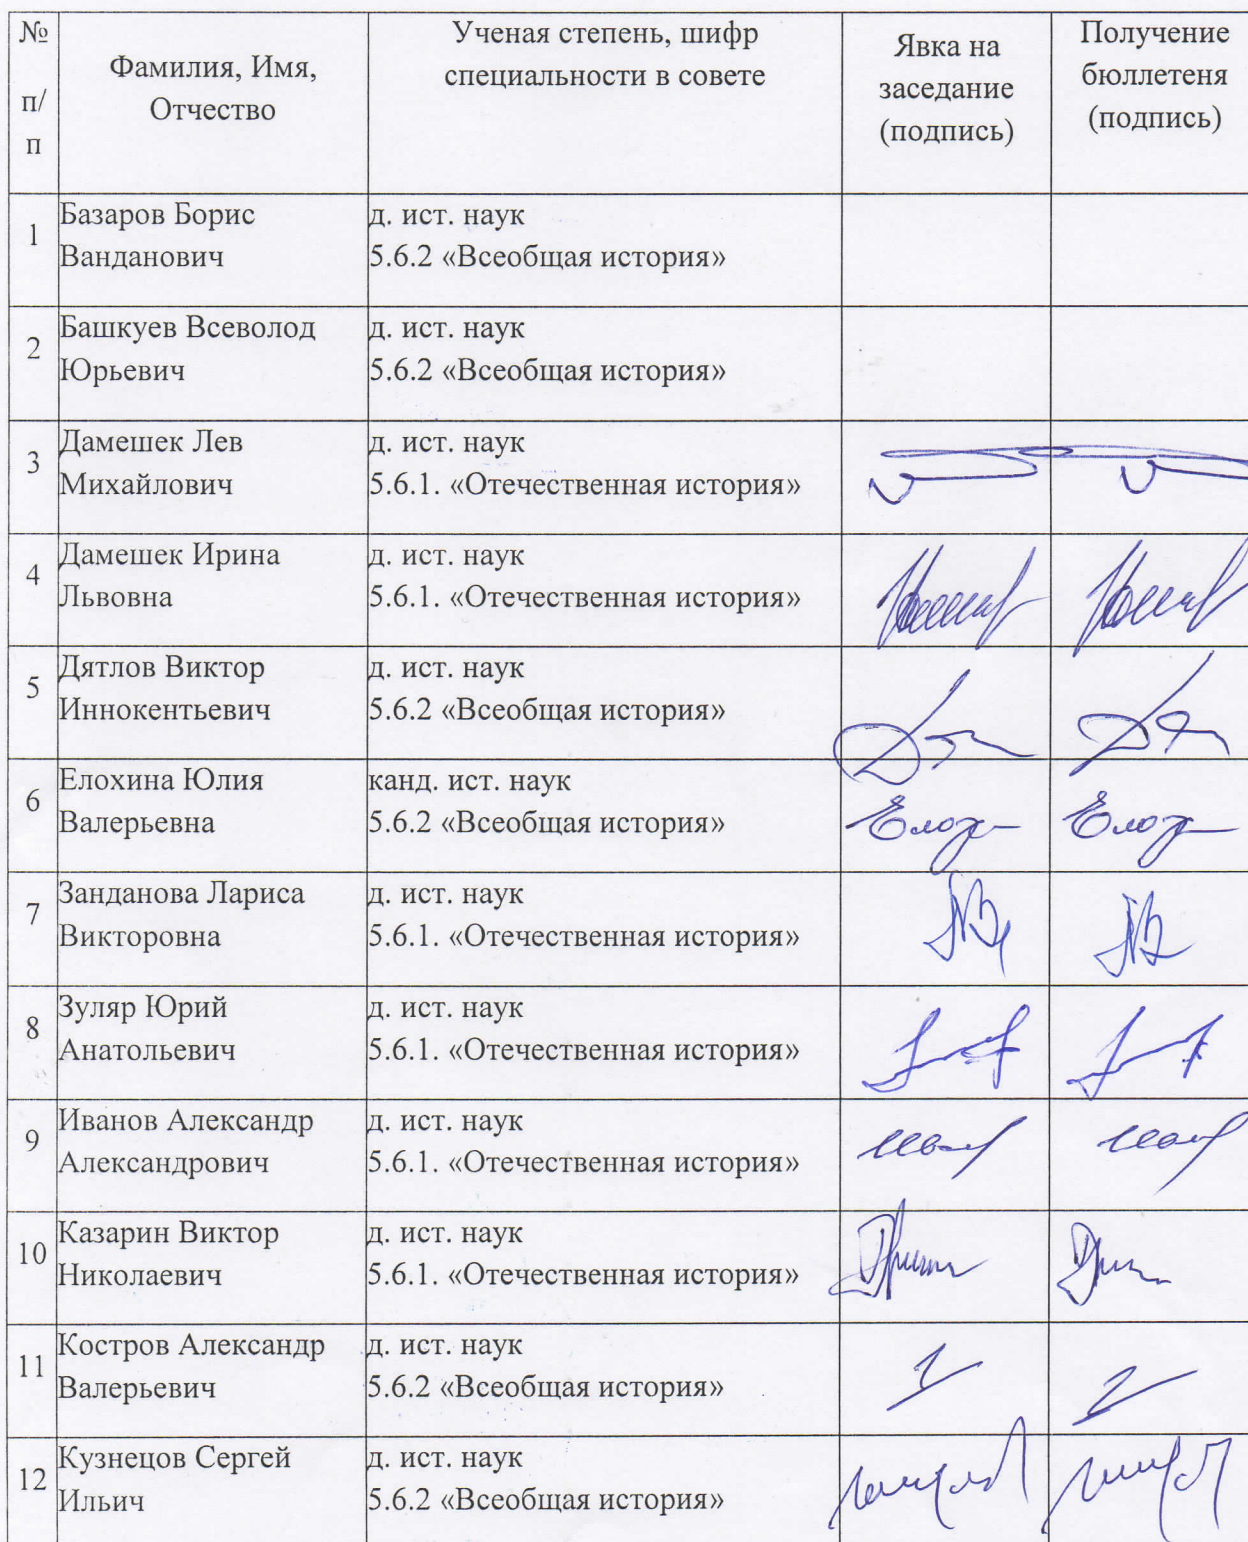 №
п/
п
Фамилия, Имя,
Отчество
Ученая степень, шифр
специальности в совете
Явка на
заседание
(подпись)
Получение
бюллетеня
(подпись)
1
Базаров Борис
Ванданович
д. ист. наук
5.6.2 «Всеобщая история»
2
Башкуев Всеволод
Юрьевич
д. ист. наук
5.6.2 «Всеобщая история»
3
Дамешек Лев
Михайлович
д. ист. наук
5.6.1. «Отечественная история»
4
Дамешек Ирина
Львовна
д. ист. наук
5.6.1. «Отечественная история»
5
Дятлов Виктор
Иннокентьевич
д. ист. наук
5.6.2 «Всеобщая история»
6
Елохина Юлия
Валерьевна
канд. ист. наук
5.6.2 «Всеобщая история»
7
Занданова Лариса
Викторовна
д. ист. наук
5.6.1. «Отечественная история»
8
Зуляр Юрий
Анатольевич
д. ист. наук
5.6.1. «Отечественная история»
9
Иванов Александр
Александрович
д. ист. наук
5.6.1. «Отечественная история»
10
Казарин Виктор
Николаевич
д. ист. наук
5.6.1. «Отечественная история»
11
Костров Александр
Валерьевич
д. ист. наук
5.6.2 «Всеобщая история»
12
Кузнецов Сергей
Ильич
д. ист. наук
5.6.2 «Всеобщая история»